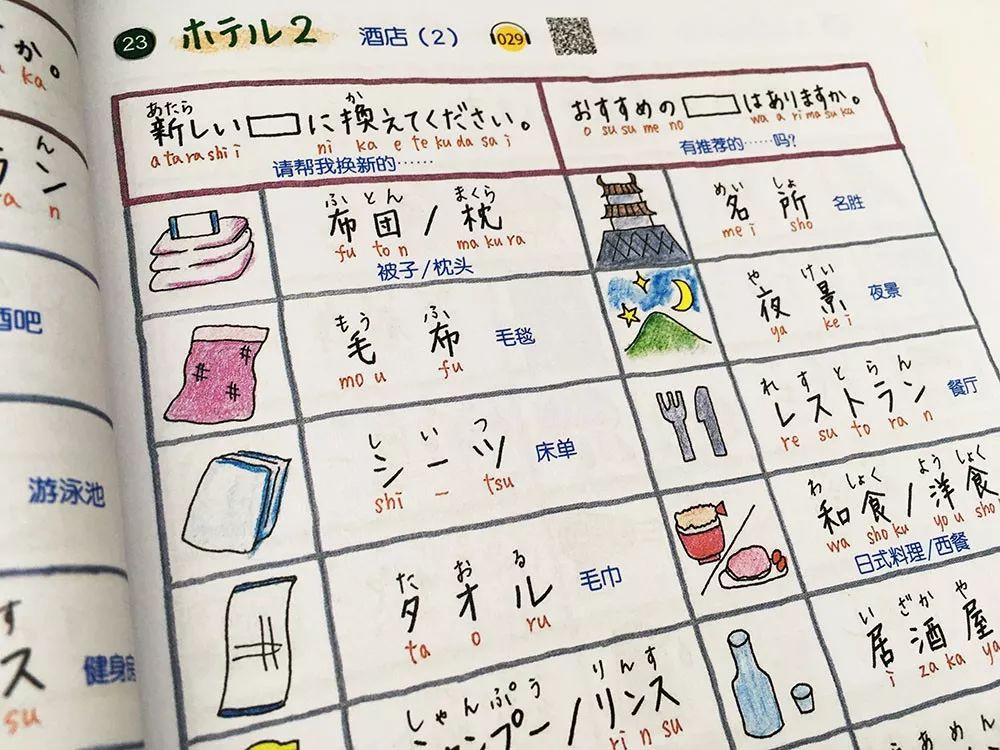 23 ホテル2 酒店（2） 029
あたら か
新しい に換えてください。
a tara shi i ni ka e te ku da sa i
请帮我换新的……
おすすめの はありますか。
o su su me no wa a ri ma su ka
有推荐的……吗?
ふ と ん まくら
布団/枕
fu to n ma ku ra
被子/枕头
もう ふ
毛布 毛毯
mo u fu
し い つ
シーツ 床单
shi – tsu
た お る
タオル 毛巾
ta o ru
しゃんぷう りんす
ャンプー/リンス
rin su
めい しょ
名所 名胜
me i sho
や けい
夜景 夜景
ya ke i
れ す と ら ん
レストラン 餐厅
re su to ra n
わ しょく よう しょく
和食/洋食
wa sho ku yo u sho
日式料理/西餐
い ざか や
居酒屋
i za ka ya
か。
ka
ん
ラン
ra n
酒吧
游泳池
す
ス
su
健身房
あ め ん